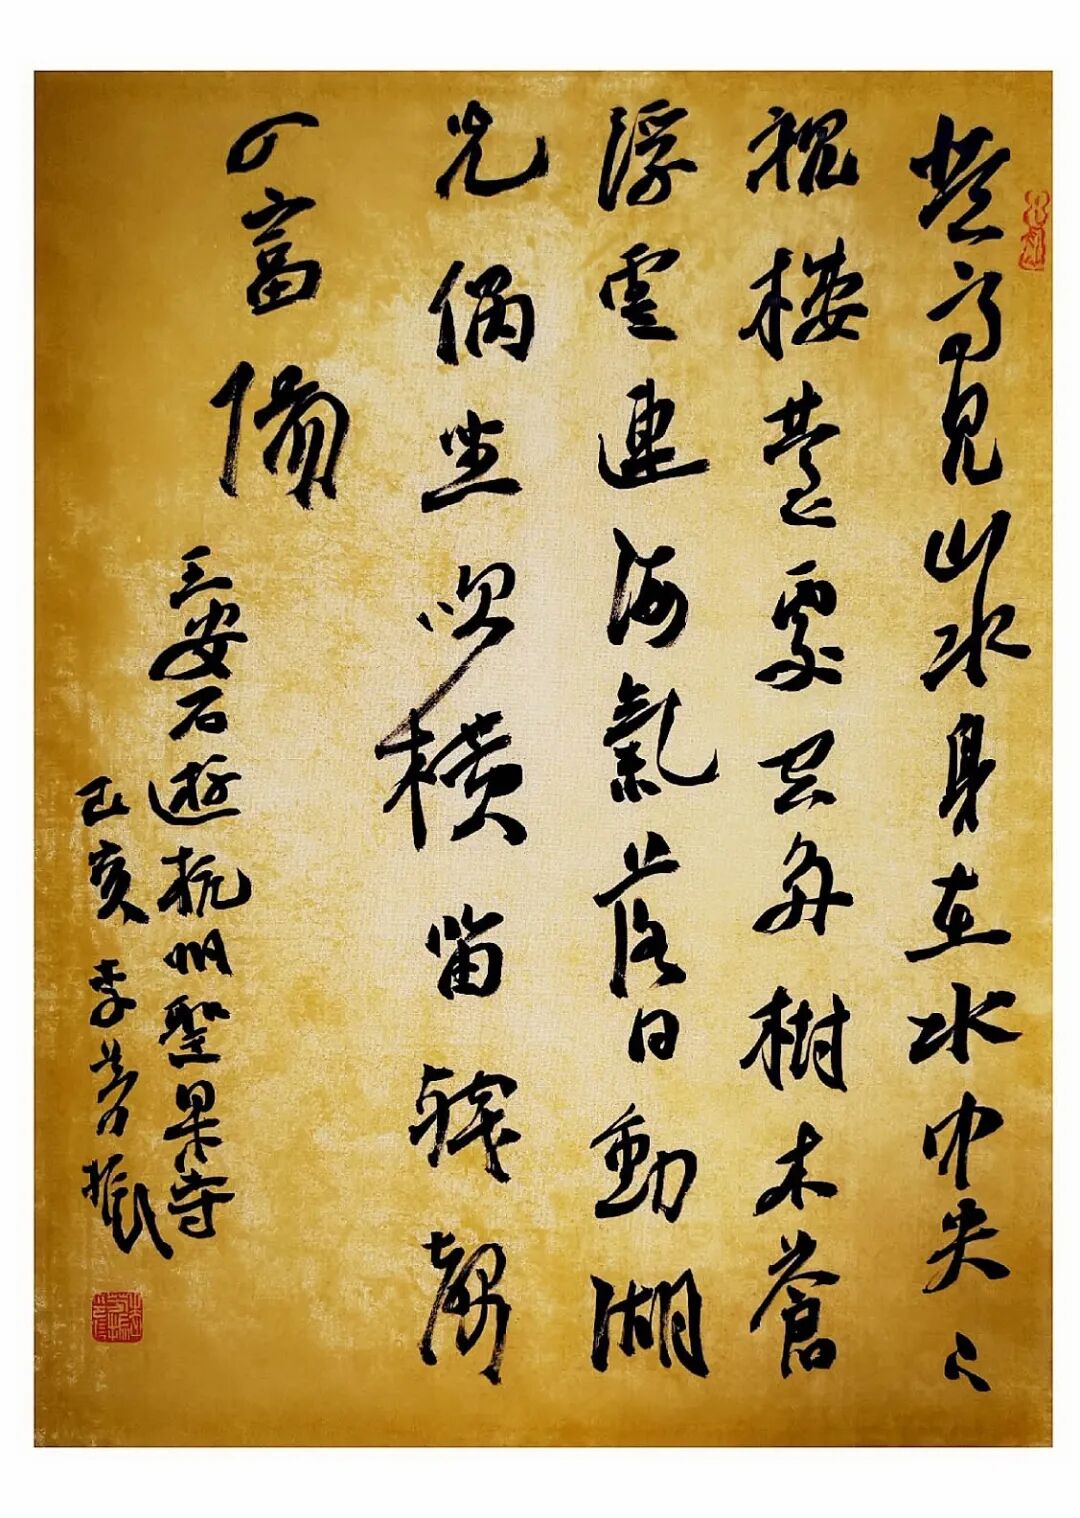 登高見山水身在水中央下
視樓臺處空多樹木蒼
浮雲連海氣落日動湖
光偶坐吹横笛殘聲
入富陽
王安石遊杭州聖果寺
己亥李芳振